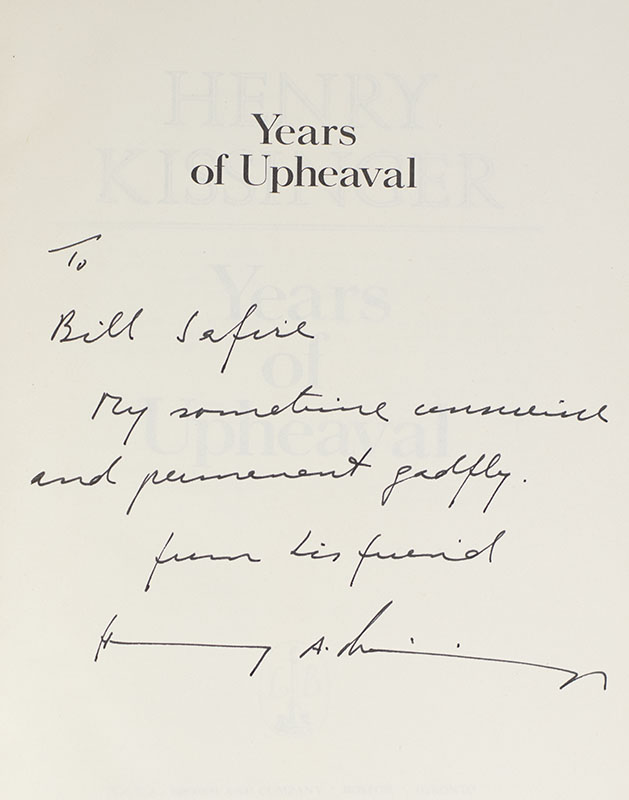 Years
of Upheaval
To
Bill Safire
My sometime conscience
and permanent gadfly.
from his friend
Henry A. Kissinger
HENRY
KISSINGER
Years
of
Upheaval